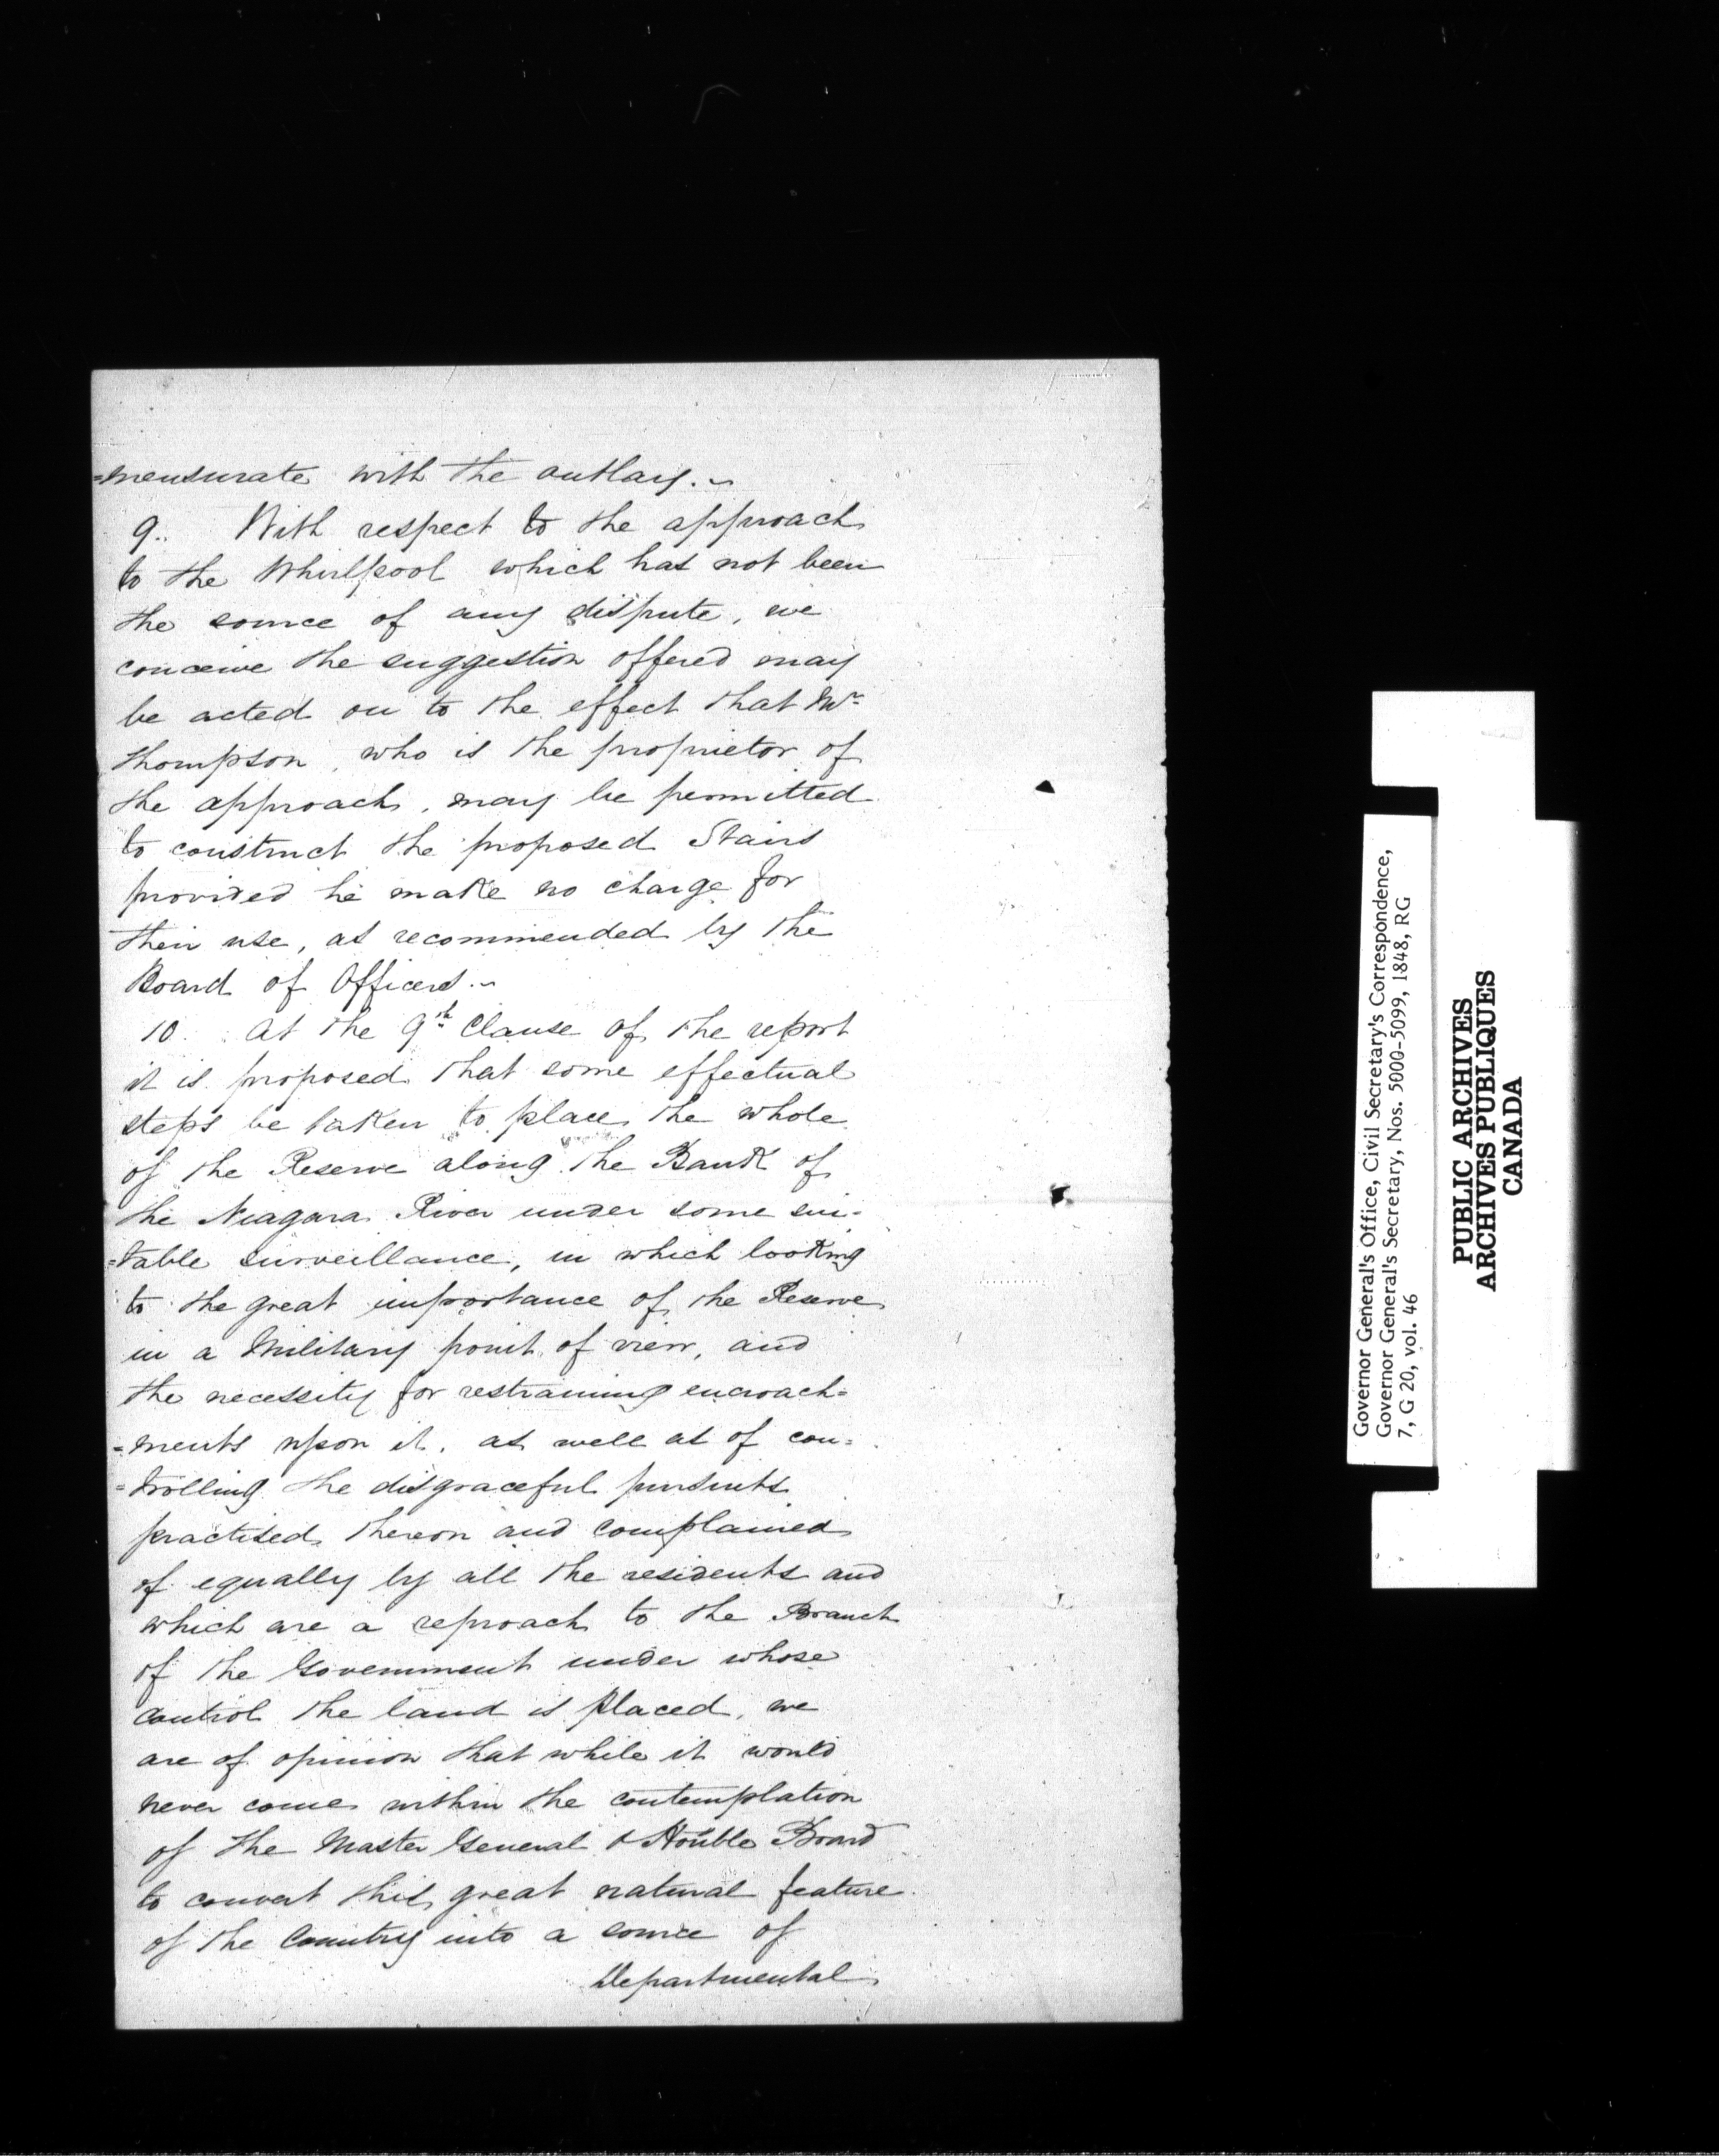 =mensurate with the outlay.~
9.. With respect to the approach
to the Whirlpool which has not been
the source of any dispute, we
conceive the suggestion offered may
be acted on to the effect that Mr
Thompson, who is the proprietor of
the approach, may be permitted
to construct the proposed Stairs
provided he make no charge for
their use, as recommended by the
Board of Officers.~
10. At the 9th Clause of the report
it is proposed that some effectual
steps be taken to place the whole
of the Reserve along the Bank of
the Niagara River under some sui-
=table surveillance, in which looking
to the great importance of the Reserve
in a Military point of view, and
the necessity for restraining encroach=
=ments upon it, as well as of con=
=trolling the disgraceful pursuits
practised thereon and complained
of equally by all the residents and
which are a reproach to the Branch
of the Government under whose
control the land is placed, we
are of opinion that while it would
never come within the contemplation
of the Master General & Honble Board
to convert this great natural feature
of the Country into a source of
Departmental
Governor General's Office, Civil Secretary's Correspondence,
Governor General's Secretary, Nos. 5000-5099, 1848, RG
7, G 20, vol. 46
PUBLIC ARCHIVES
ARCHIVES PUBLIQUES
CANADA